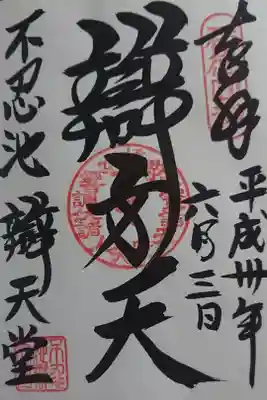 奉拝
平成卅年
六月三日
辯才天
不忍池 辯天堂